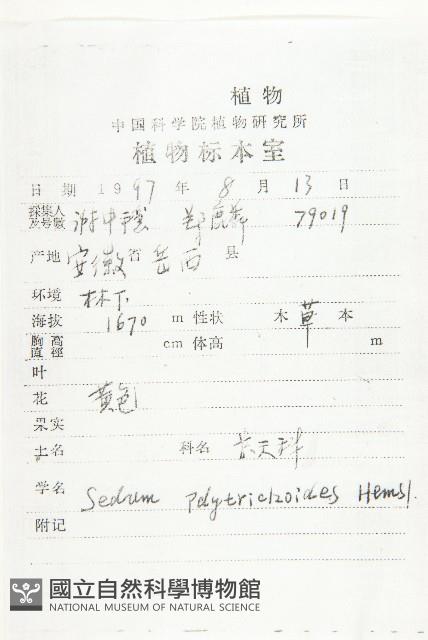 植物
中国科学院植物研究所
植物标本室
日期 1997 年 8 月 13 日
採集人及号数 谢中稳 79019
产地 安徽省 岳西 县
环境 林下
海拔 1670 m 性状 木 草 本
胸高直徑 cm 体高 m
叶
花 黄色
果实
土名 科名 景天科
学名 Sedum polytrichoides Hemsl.
附记
國立自然科學博物館
NATIONAL MUSEUM OF NATURAL SCIENCE